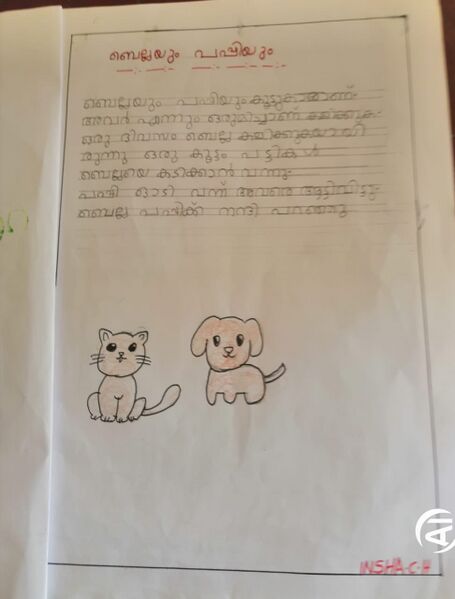 ബെല്ലയും പപ്പിയും
ബെല്ലയും പപ്പിയും കൂട്ടുകാരാണ്.
അവർ എന്നും ഒരുമിച്ചാണ് കളിക്കുക.
ഒരു ദിവസം ബെല്ല കളിക്കുകയായി
രുന്നു ഒരു കൂട്ടം പട്ടികൾ
ബെല്ലയെ കടിക്കാൻ വന്നു.
പപ്പി ഓടി വന്ന് അവരെ ആട്ടിവിട്ടു.
ബെല്ല പപ്പിക്ക് നന്ദി പറഞ്ഞു
INSHA.C.H